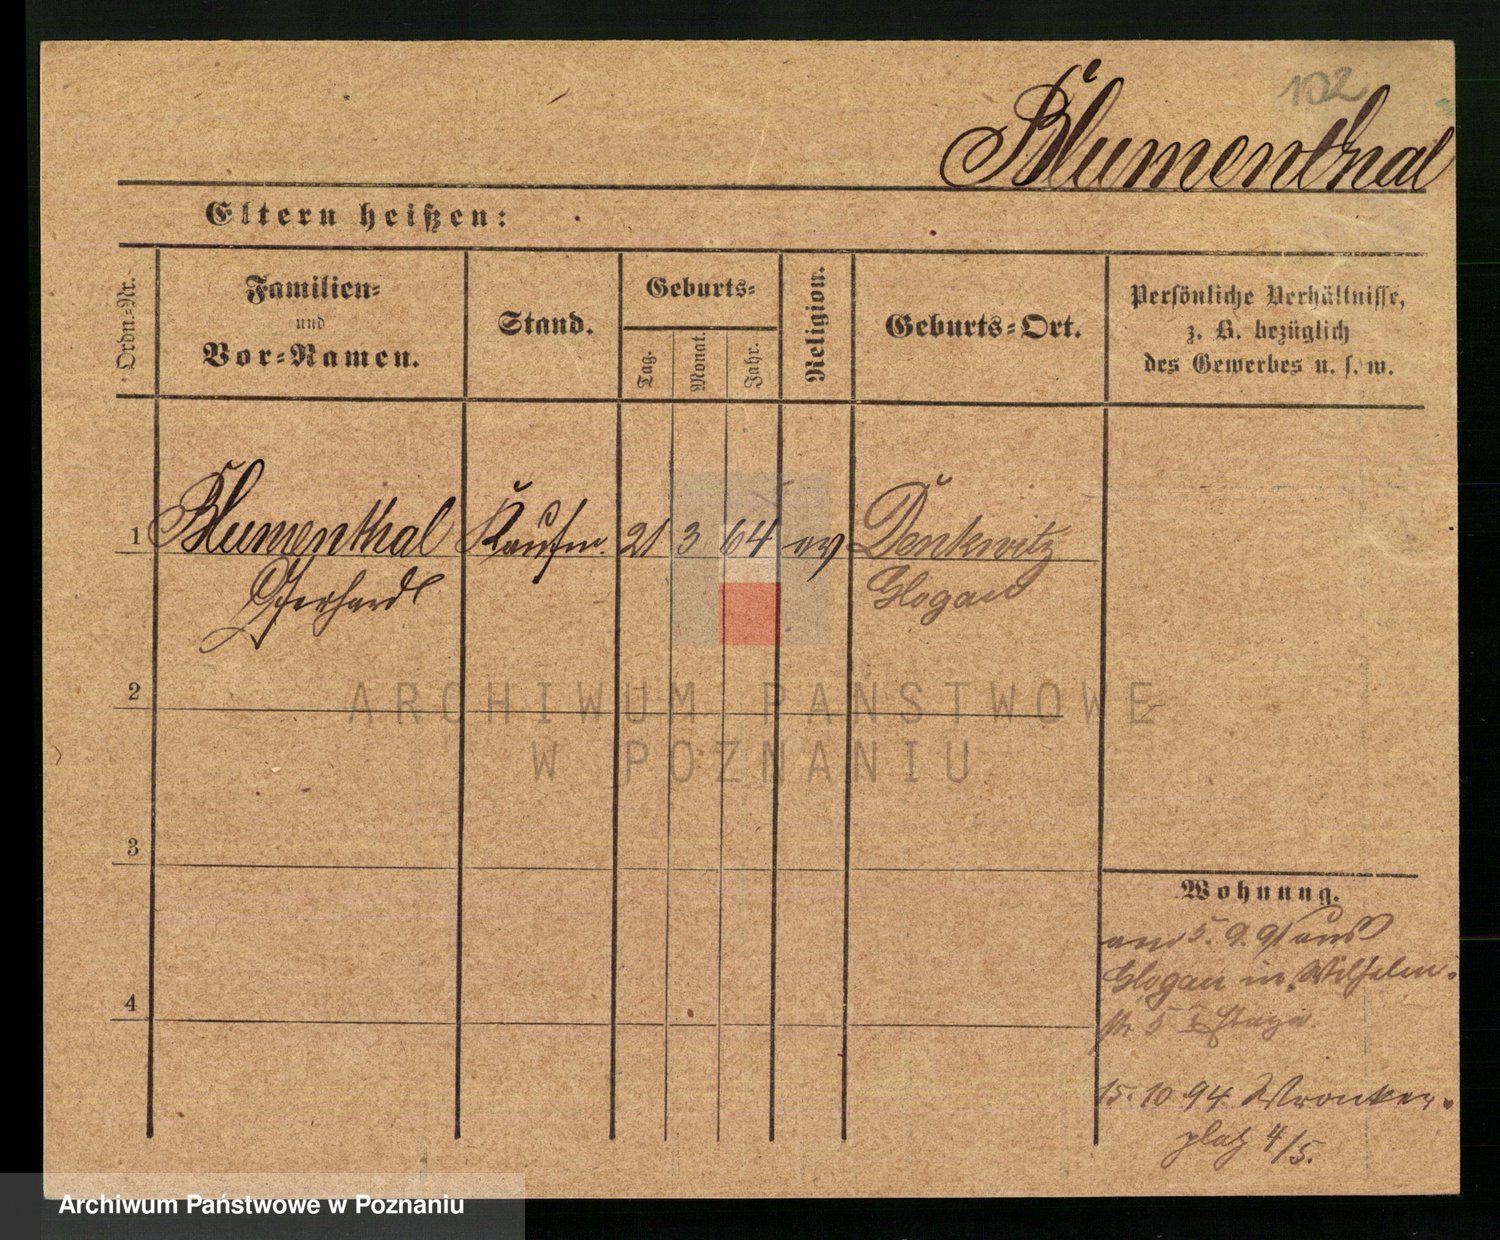 102
Blumenthal
Eltern heißen:
Ordn.-Nr.
Familien-
und
Vor-Namen.
Stand.
Geburts-
Tag.
Monat.
Jahr.
Religion.
Geburts-Ort.
Persönliche Verhältnisse,
z. B. bezüglich
des Gewerbes u. s. w.
1 Blumenthal Kaufm. 21 3 64 ev Denkwitz
Gerhard Glogau
2
3
4
ARCHIWUM PAŃSTWOWE
W POZNANIU
Wohnung.
am 5. 9. 91 aus
Glogau in Wilhelm-
str 5
15. 10 94 Wronker-
platz 4/5.
Archiwum Państwowe w Poznaniu